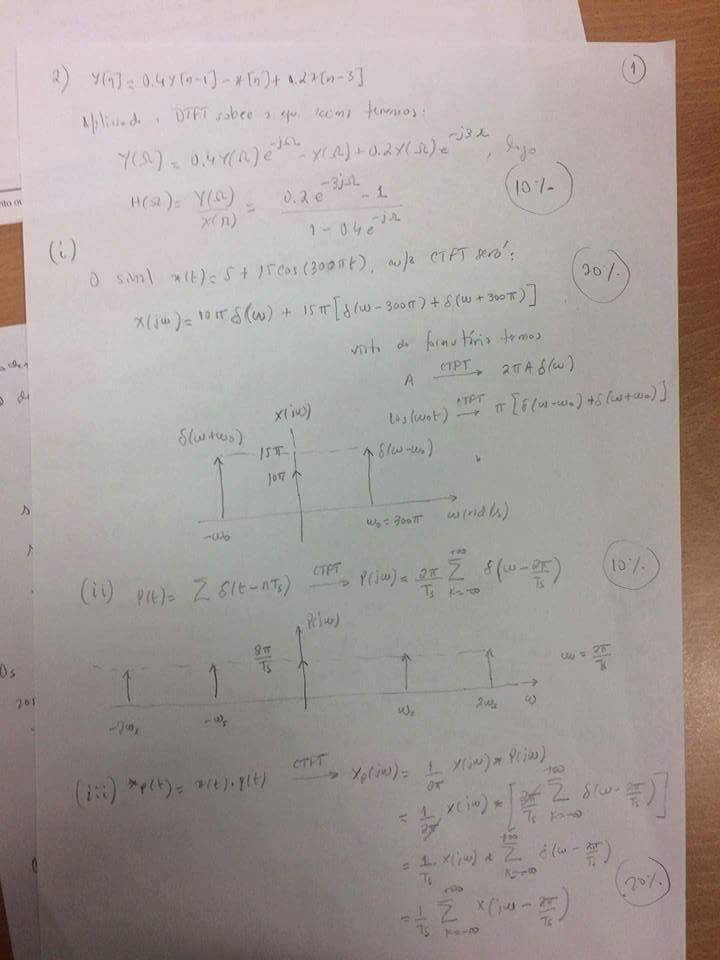 ①
2) y[n] = 0.4y[n-1] - x[n] + 0.2x[n-3]
Aplicando a DTFT sobre a equ. acima teremos:
Y(Ω) = 0.4Y(Ω)e^{-jΩ} - X(Ω) + 0.2X(Ω)e^{-j3Ω}, logo
H(Ω) = Y(Ω)/X(Ω) = (0.2e^{-3jΩ} - 1)/(1 - 0.4e^{-jΩ})
10%
(i)
O sinal x(t) = 5 + 15cos(300πt), CTFT será:
20%
X(jω) = 10πδ(ω) + 15π[δ(ω-300π) + δ(ω+300π)]
visto do formulário temos
A —CTFT→ 2πAδ(ω)
cos(ω₀t) —CTFT→ π[δ(ω-ω₀) + δ(ω+ω₀)]
X(jω)
δ(ω+ω₀) 15π δ(ω-ω₀)
10π
-ω₀ ω₀ = 300π ω(rad/s)
(ii) P(t) = Σ δ(t-nTs) —CTFT→ P(jω) = 2π/Ts Σ_{k=-∞}^{+∞} δ(ω - 2π/Ts)
10%
P(jω)
2π/Ts
-2ωs -ωs ωs 2ωs ω
(iii) xp(t) = x(t).p(t) —CTFT→ Xp(jω) = 1/2π X(jω) * P(jω)
= 1/2π X(jω) * [2π/Ts Σ_{k=-∞}^{+∞} δ(ω - 2π/Ts)]
= 1/Ts X(jω) * Σ_{k=-∞}^{+∞} δ(ω - 2π/Ts)
= 1/Ts Σ_{k=-∞}^{+∞} X(jω - 2π/Ts)
20%